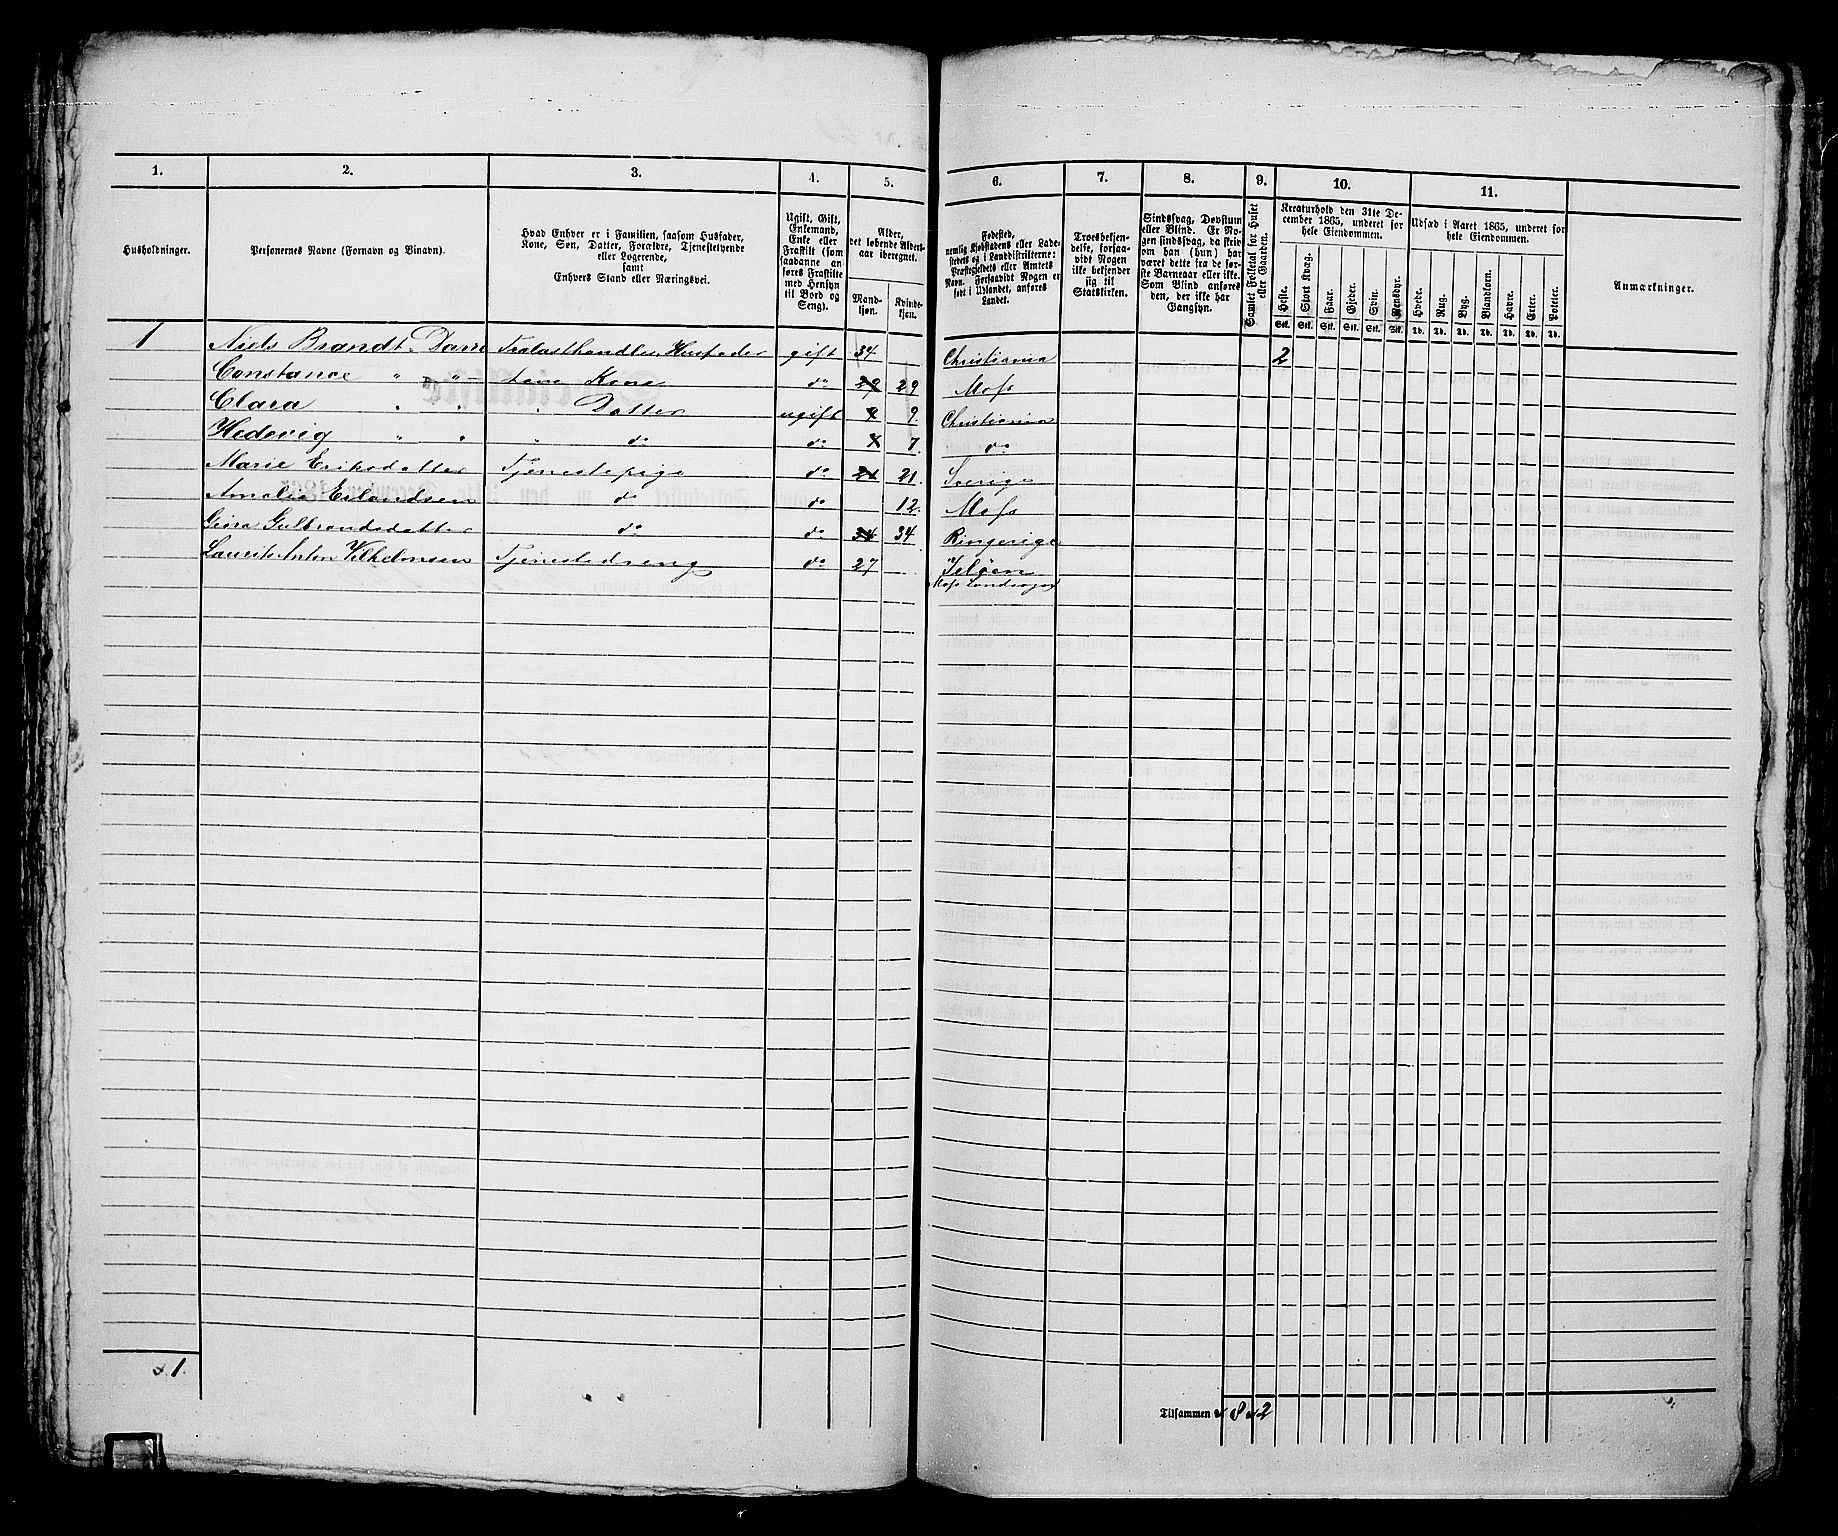 1. 2. 3. 4. 5. 6. 7. 8. 9. 10. 11.
Husholdninger.
Personernes Navne (Fornavn og Binavn).
Hvad Enhver er i Familien, saasom Husfader, Kone, Søn, Datter, Forældre, Tjenestetyende eller Logerende, samt Enhvers Stand eller Næringsvei.
Ugift, Gift, Enkemand, Enke eller Fraskilt (som saadanne anføres Fraskilte med Hensyn til Bord og Seng).
Alder, det løbende Alders-aar iberegnet.
Mandkjøn. Kvindekjøn.
Fødested, nemlig Kjøbstadens eller Ladestedets og i Landdistrikterne: Præstegjeldets eller Amtets Navn. Forsaavidt Nogen er født i Udlandet, anføres Landet.
Troesbekjendelse, forsaavidt Nogen ikke bekjender sig til Statskirken.
Sindssvag, Døvstum eller Blind. Er Nogen sindssvag, da skrives om han (hun) har været dette fra de første Barneaar eller ikke. Som Blind anføres den, der ikke har Gangsyn.
Samlet Folketal for Huset eller Gaarden.
Kreaturhold den 31te December 1865, underet for hele Eiendommen.
Heste. Stort Kvæg. Faar. Gjeder. Svin. Rensdyr.
Stk. Stk. Stk. Stk. Stk. Stk.
Udsæd i Aaret 1865, underet for hele Eiendommen.
Hvede. Rug. Byg. Blandkorn. Havre. Erter. Poteter.
Td. Td. Td. Td. Td. Td. Td.
Anmærkninger.
1 Niels Brandt Dam Trælasthandler, Husfader gift 34 Christiania 2
Constance " " Kone do 29 29 Moss
Clara " " " Datter ugift 9 9. Christiania
Hedevig " " " do do 7 7. do
Marie Eriksdatter Tjenestepige do 21 21. Sverige
Amalia Erlandsen do do 12. Moss
Gina Gulbrandsdatter do do 34 34. Ringerige
Laurits Anton Vilhelmsen Tjenestedreng do 27 Jeløen
Moss Landsogn
1.
Tilsammen 8 2